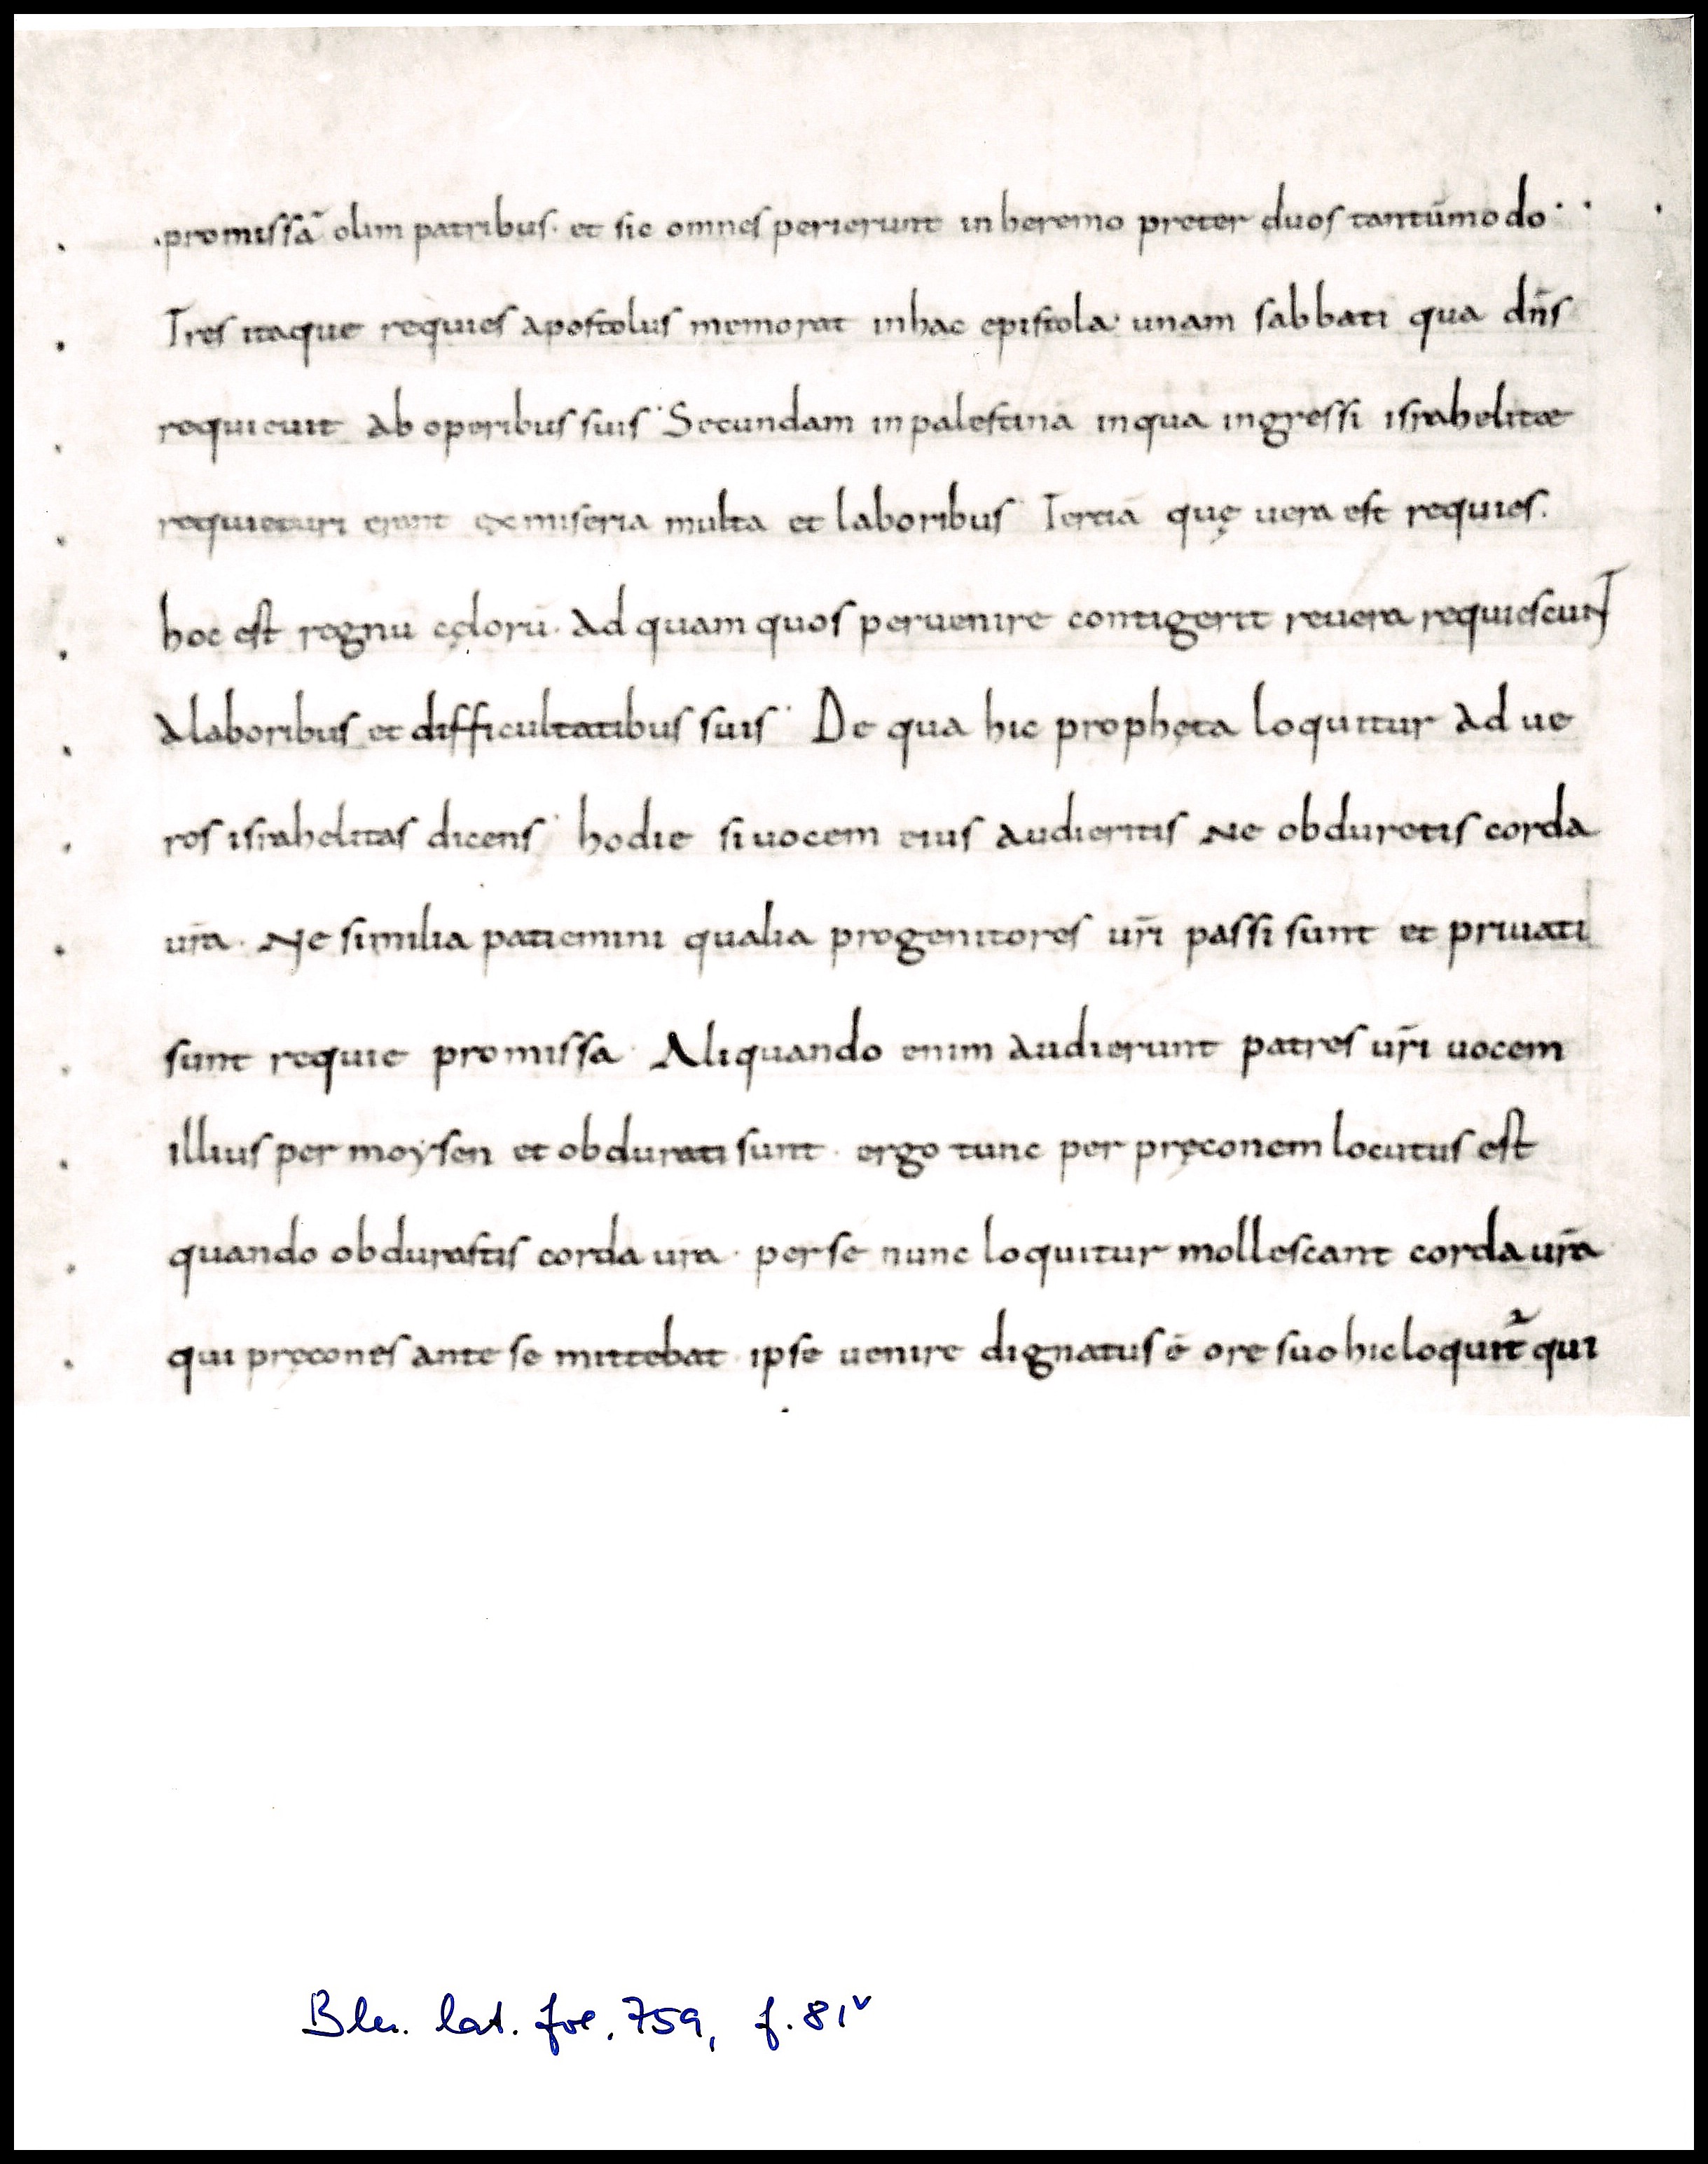 promissā olim patribus· et sic omnes perierunt in heremo preter duos tantūmodo··
Tres itaque requies apostolus memorat in hac epistola· unam sabbati qua dn̄s
requieuit ab operibus suis· Secundam in palestina in qua ingressi israhelitæ
requieturi erant ex miseria multa et laboribus· Tertiā quę uera est requies.
hoc est regnū cęlorū· ad quam quos peruenire contigerit reuera requiescunt
a laboribus et difficultatibus suis· De qua hic propheta loquitur ad ue
ros israhelitas dicens· hodie si uocem eius audieritis ne obduretis corda
ur̄a· Ne similia patiemini qualia progenitores ur̄i passi sunt et priuati
sunt requie promissa· Aliquando enim audierunt patres ur̄i uocem
illius per moysen et obdurati sunt· ergo tunc per pręconem locutus est
quando obdurastis corda ura· per se nunc loquitur mollescant corda ur̄a
qui pręcones ante se mittebat· ipse uenire dignatus ē ore suo hic loquit̄ qui
Bln. lat. fol. 759, f. 81v